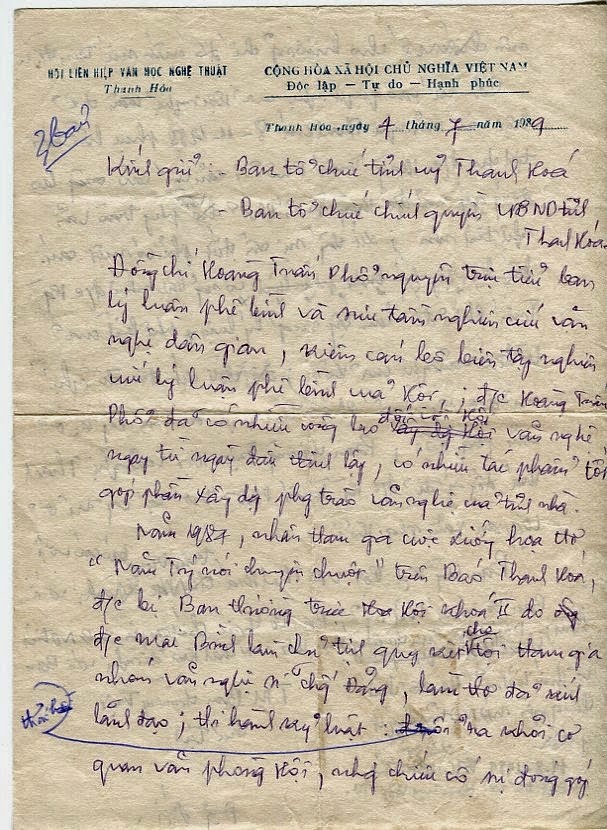 HỘI LIÊN HIỆP VĂN HỌC NGHỆ THUẬT
Thanh Hóa
CỘNG HÒA XÃ HỘI CHỦ NGHĨA VIỆT NAM
Độc lập — Tự do — Hạnh phúc
Thanh Hóa, ngày 4 tháng 7 năm 1989
Kính gửi: - Ban tổ chức tỉnh uỷ Thanh Hoá
- Ban tổ chức chính quyền UBND tỉnh
Thanh Hóa
Đồng chí Hoàng Tuấn Phổ nguyên tiểu ban
lý luận phê bình và sưu tầm nghiên cứu văn
nghệ dân gian, kiêm cán bộ biên tập nghiên
cứu lý luận phê bình của Hội, ; đ/c Hoàng Tuấn
Phổ đã có nhiều công lao đối với Hội văn nghệ
ngay từ ngày đầu thành lập, có nhiều tác phẩm tốt
góp phần xây dựng phong trào văn nghệ của tỉnh nhà.
Năm 1987, nhân tham gia cuộc xướng họa thơ
"Năm Tý nói chuyện chuột" trên Báo Thanh Hoá,
đ/c bị Ban thường trực Hội khoá II do ông
đ/c Mai Bình làm chủ tịch quy kết cho tội tham gia
nhóm văn nghệ sĩ chống Đảng, làm thơ đả kích
lãnh đạo; thi hành kỷ luật: ra khỏi cơ
quan văn phòng Hội, nhưng chiếu cố sự đóng góp